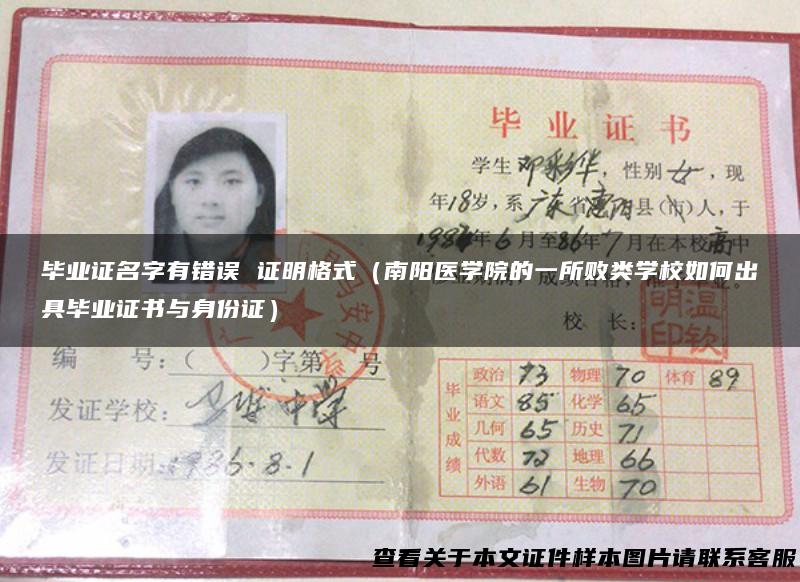 毕业证书
学生邓彩华，性别女，现
年18岁，系广东省惠阳县(市)人，于
1983年6月至86年7月在本校高中
毕业证名字有错误 证明格式（南阳医学院的一所败类学校如何出
具毕业证书与身份证）
校 长：
温钦明印
编 号：（ ）字第 号
发证学校：马安中学
发证日期：1986.8.1
毕业成绩
政治 73 物理 70 体育 89
语文 85 化学 65
几何 65 历史 71
代数 72 地理 66
外语 61 生物 70
查看关于本文证件样本图片请联系客服